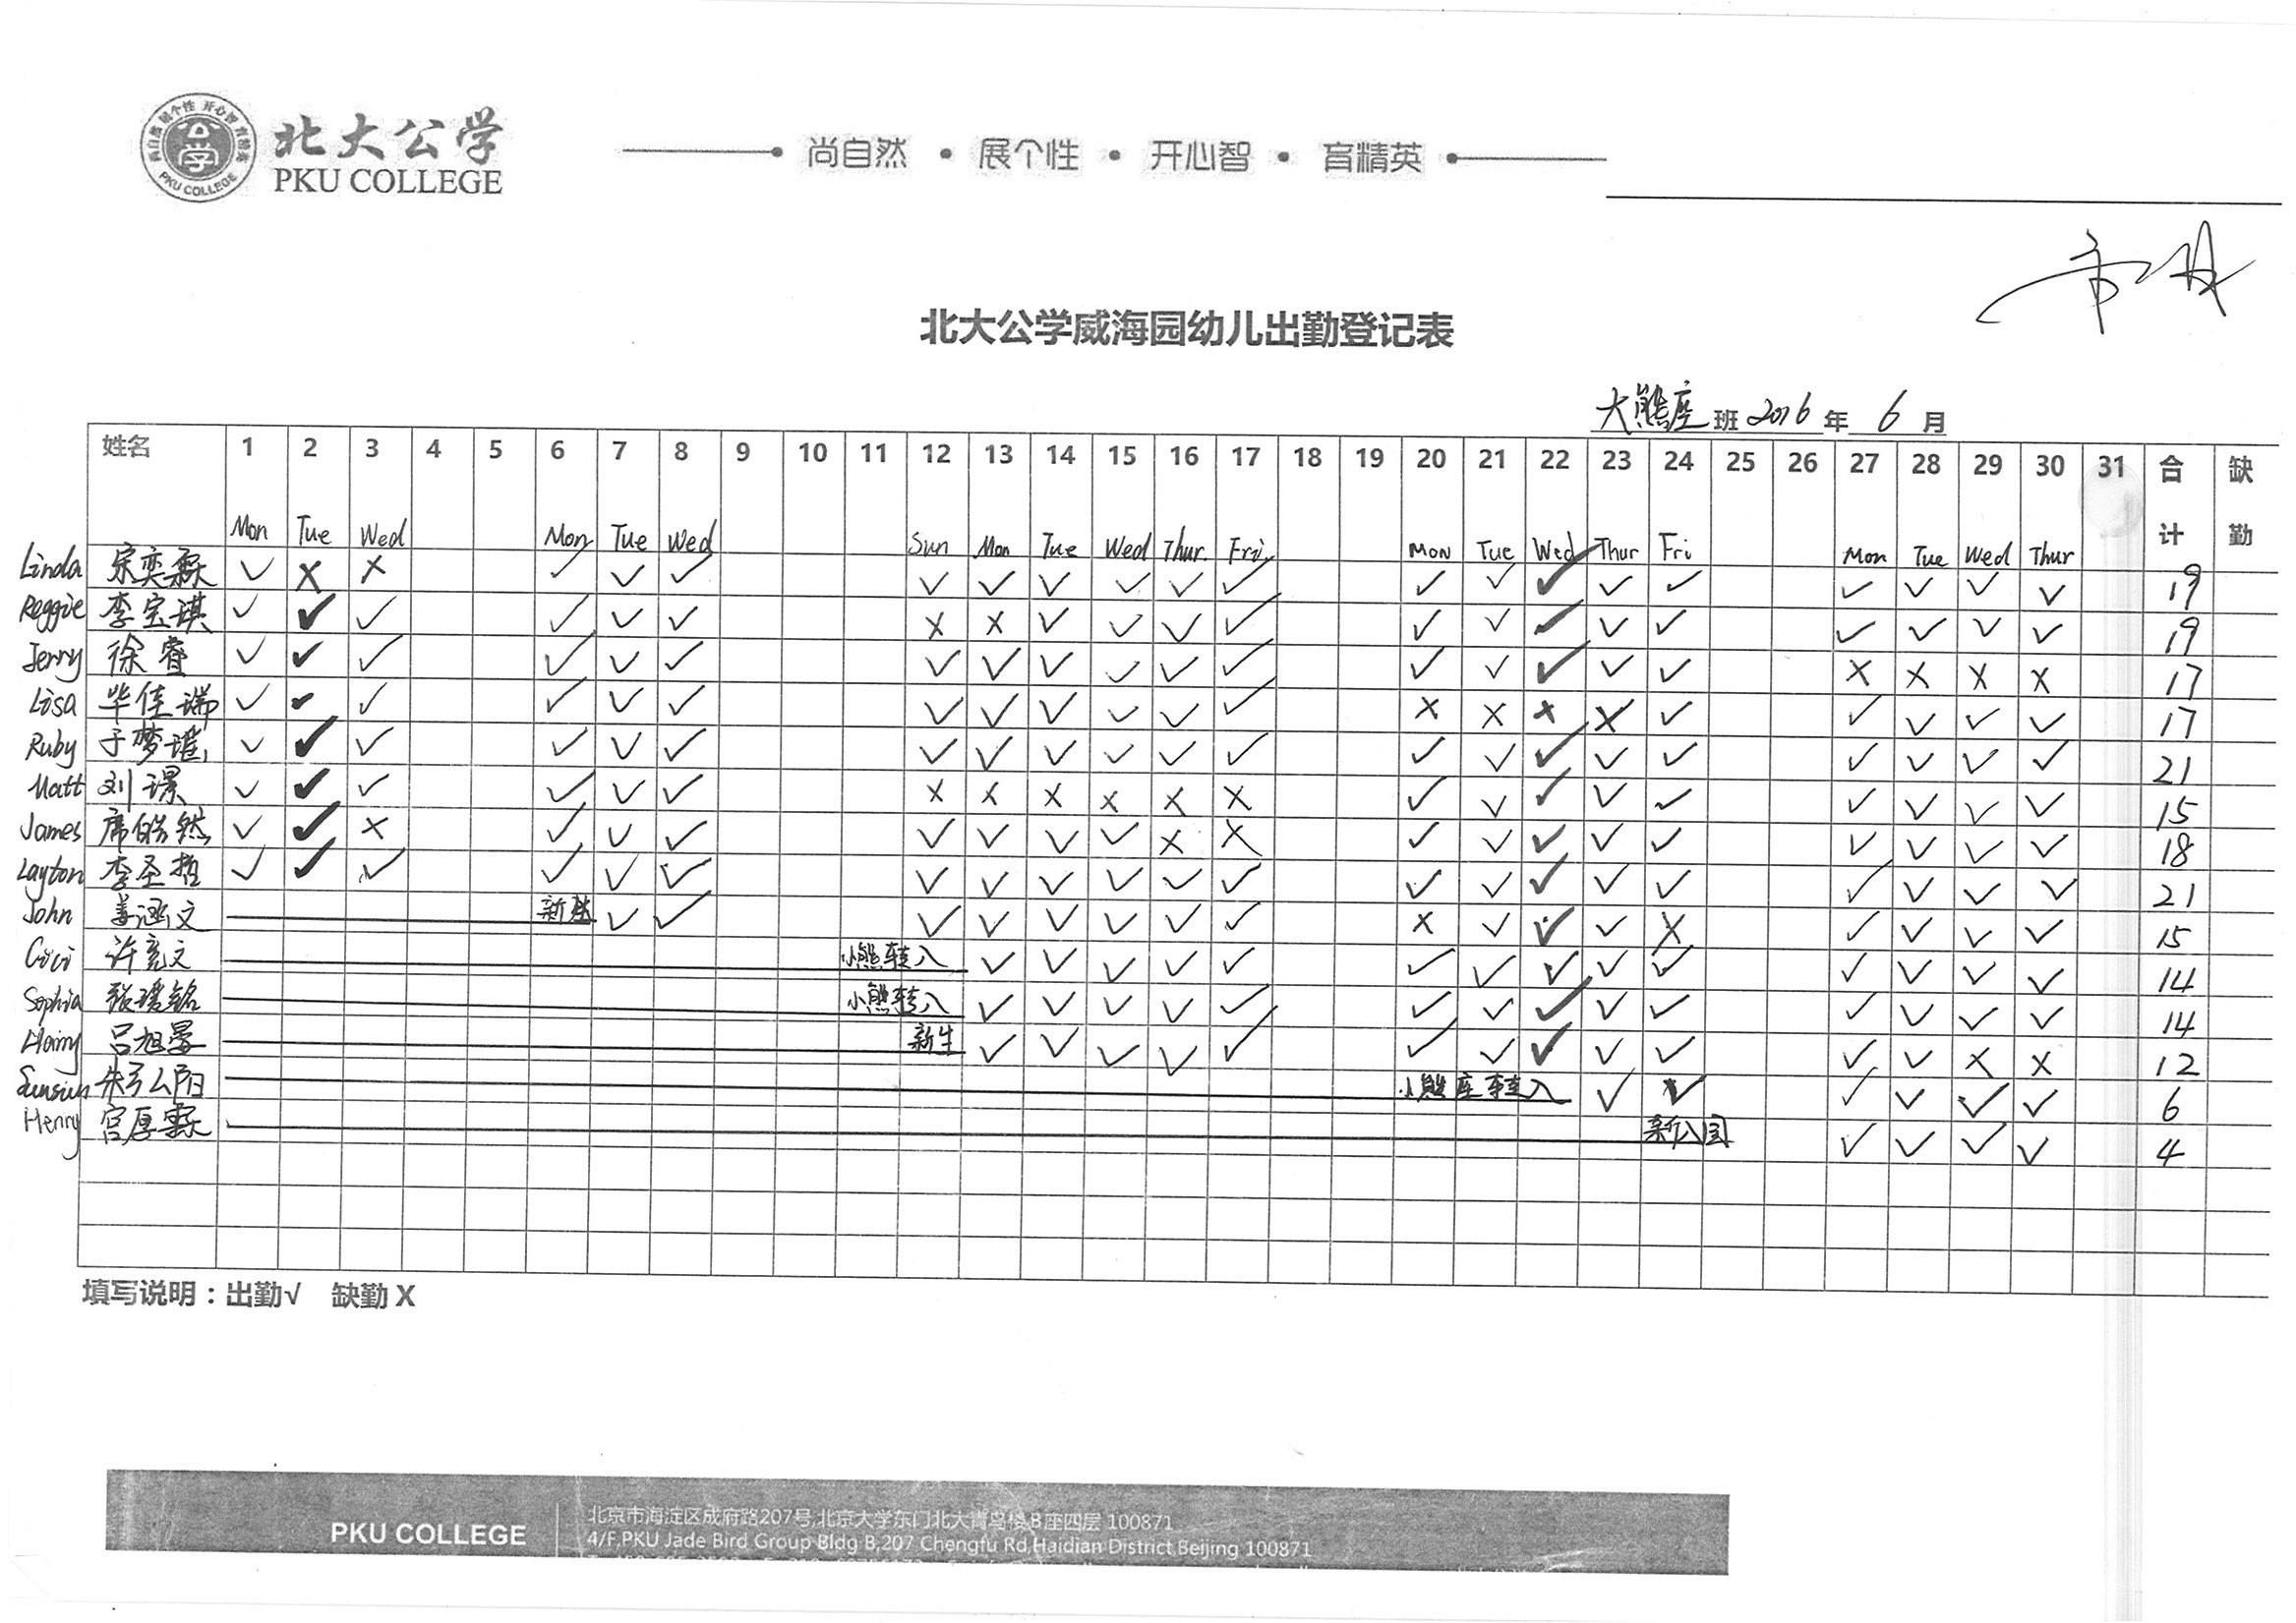 北大公学
PKU COLLEGE
尚自然 • 展个性 • 开心智 • 育精英
北大公学威海园幼儿出勤登记表
大熊座 班 2016 年 6 月
姓名 1 2 3 4 5 6 7 8 9 10 11 12 13 14 15 16 17 18 19 20 21 22 23 24 25 26 27 28 29 30 31 合计 缺勤
Mon Tue Wed Mon Tue Wed Sun Mon Tue Wed Thur Fri Mon Tue Wed Thur Fri Mon Tue Wed Thur
Linda 宋奕霖 √ X X √ √ √ √ √ √ √ √ √ √ √ √ √ √ √ √ √ √ 19
Reggie 李宝琪 √ √ √ √ √ √ X X √ √ √ √ √ √ √ √ √ √ √ √ √ 19
Jerry 徐睿 √ √ √ √ √ √ √ √ √ √ √ √ √ √ √ √ √ X X X X 17
Lisa 毕佳瑞 √ √ √ √ √ √ √ √ √ √ √ √ X X X X √ √ √ √ √ 17
Ruby 于梦瑶 √ √ √ √ √ √ √ √ √ √ √ √ √ √ √ √ √ √ √ √ √ 21
Matt 刘璟 √ √ √ √ √ √ X X X X X X √ √ √ √ √ √ √ √ √ 15
James 席皓然 √ √ X √ √ √ √ √ √ √ X X √ √ √ √ √ √ √ √ √ 18
Layton 李圣哲 √ √ √ √ √ √ √ √ √ √ √ √ √ √ √ √ √ √ √ √ √ 21
John 姜涵文 新生 √ √ √ √ √ √ √ √ X √ √ √ X √ √ √ √ 15
Cici 许 文 小熊转入 √ √ √ √ √ √ √ √ √ √ √ √ √ √ 14
Sophia 张 铭 小熊转入 √ √ √ √ √ √ √ √ √ √ √ √ √ √ 14
吕旭 新生 √ √ √ √ √ √ √ √ √ √ √ √ X X 12
小熊座转入 √ √ √ √ √ √ 6
Henry 宫厚霖 新入园 √ √ √ √ 4
填写说明：出勤√ 缺勤 X
PKU COLLEGE
北京市海淀区成府路207号,北京大学东门北大青鸟楼B座四层 100871
4/F,PKU Jade Bird Group Bldg B,207 Chengfu Rd,Haidian District,Beijing 100871